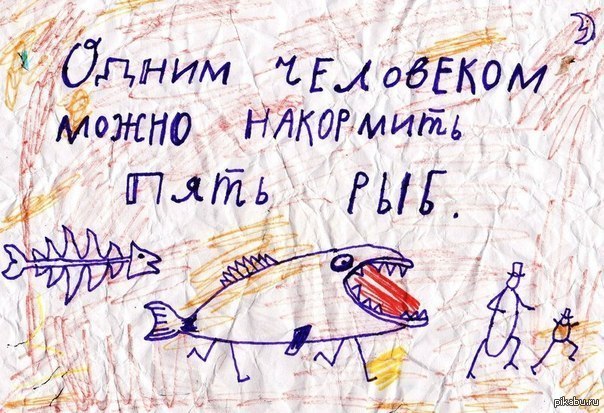 Одним человеком
можно накормить
пять рыб.
pikabu.ru